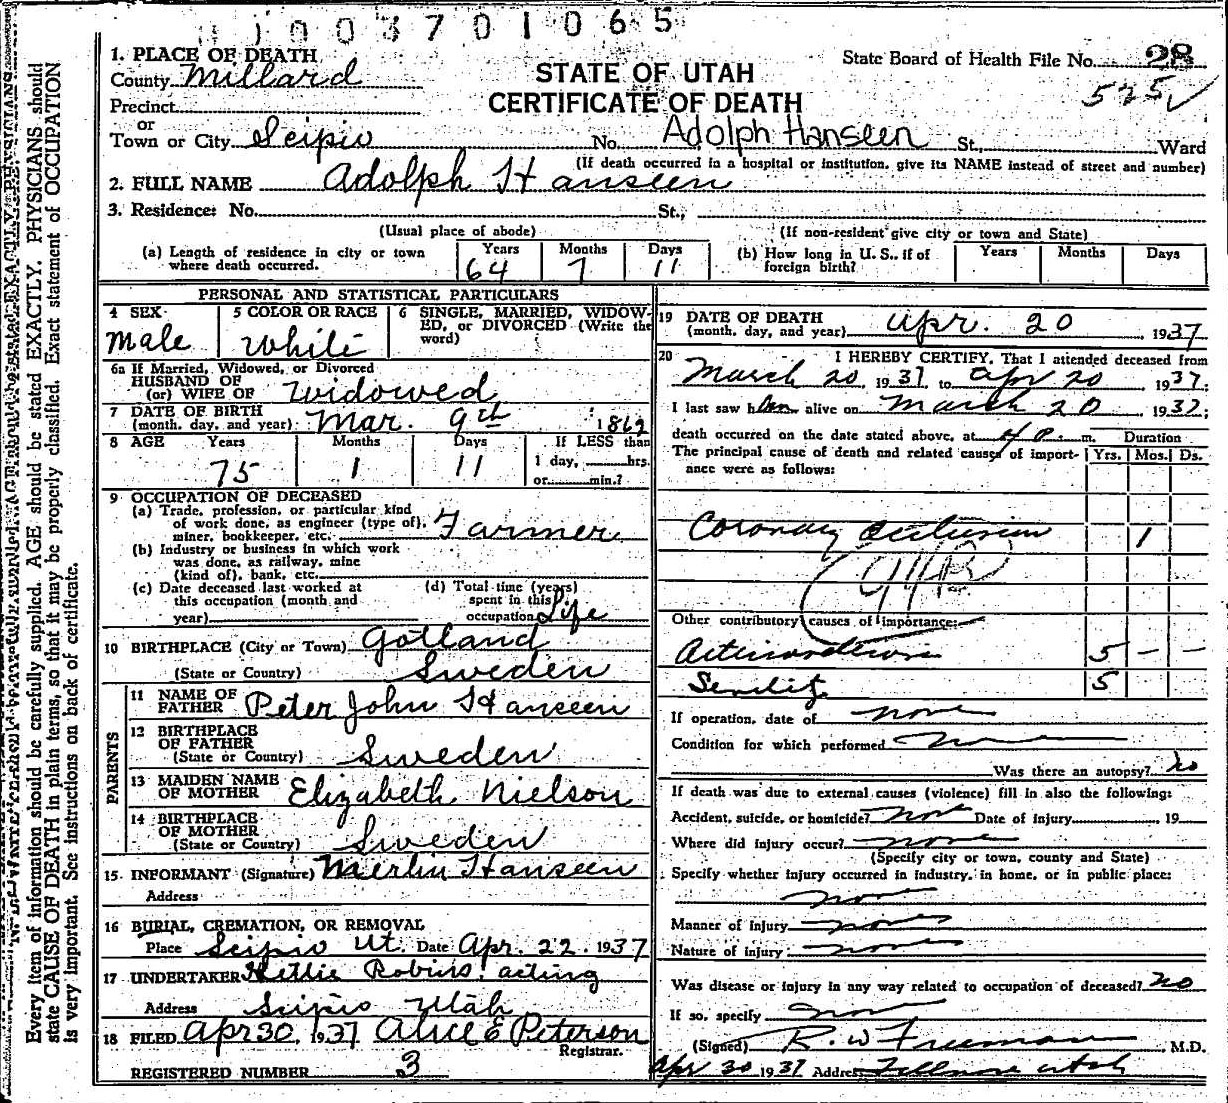 1003701065
1. PLACE OF DEATH
County Millard
Precinct
or
Town or City Scipio No. Adolph Hanseen St., Ward
STATE OF UTAH
CERTIFICATE OF DEATH
State Board of Health File No. 28
525
(If death occurred in a hospital or institution, give its NAME instead of street and number)
2. FULL NAME Adolph Hanseen
3. Residence: No. St.,
(Usual place of abode) (If non-resident give city or town and State)
(a) Length of residence in city or town where death occurred. Years 64 Months 7 Days 11
(b) How long in U. S., if of foreign birth? Years Months Days
PERSONAL AND STATISTICAL PARTICULARS
4 SEX Male
5 COLOR OR RACE White
6 SINGLE, MARRIED, WIDOWED, or DIVORCED (Write the word)
6a If Married, Widowed, or Divorced
HUSBAND OF
(or) WIFE OF Widowed
7 DATE OF BIRTH
(month, day, and year) Mar. 9th 1862
8 AGE Years 75 Months 1 Days 11 If LESS than
1 day, hrs.
or min.?
9 OCCUPATION OF DECEASED
(a) Trade, profession, or particular kind
of work done, as engineer (type of),
miner, bookkeeper, etc. Farmer
(b) Industry or business in which work
was done, as railway, mine
(kind of), bank, etc.
(c) Date deceased last worked at
this occupation (month and
year)
(d) Total time (years)
spent in this
occupation Life
10 BIRTHPLACE (City or Town) Gotland
(State or Country) Sweden
PARENTS
11 NAME OF
FATHER Peter John Hanseen
12 BIRTHPLACE
OF FATHER
(State or Country) Sweden
13 MAIDEN NAME
OF MOTHER Elizabeth Nielson
14 BIRTHPLACE
OF MOTHER
(State or Country) Sweden
15 INFORMANT (Signature) Merlin Hanseen
Address
16 BURIAL, CREMATION, OR REMOVAL
Place Scipio Ut. Date Apr. 22, 1937
17 UNDERTAKER Hettie Robins, acting
Address Scipio Utah
18 FILED Apr 30, 1937 Alice E Peterson
Registrar.
REGISTERED NUMBER 3
19 DATE OF DEATH
(month, day, and year) Apr. 20 1937
20 I HEREBY CERTIFY, That I attended deceased from
March 20, 1937 to Apr 20 1937;
I last saw him alive on March 20 1937;
death occurred on the date stated above, at 4 P. m.
Duration
The principal cause of death and related causes of importance were as follows: Yrs. Mos. Ds.
Coronary 1
Other contributory causes of importance:
5 - -
Senility 5
If operation, date of none
Condition for which performed none
Was there an autopsy? No
If death was due to external causes (violence) fill in also the following:
Accident, suicide, or homicide? not Date of injury 19
Where did injury occur? none
(Specify city or town, county and State)
Specify whether injury occurred in industry, in home, or in public place:
non
Manner of injury none
Nature of injury none
Was disease or injury in any way related to occupation of deceased? no
If so, specify
(Signed) R. W Freeman M.D.
Apr 30 1937 Address Fillmore Utah
Every item of information should be carefully supplied. AGE should be stated EXACTLY. PHYSICIANS should
state CAUSE OF DEATH in plain terms, so that it may be properly classified. Exact statement of OCCUPATION
is very important. See instructions on back of certificate.